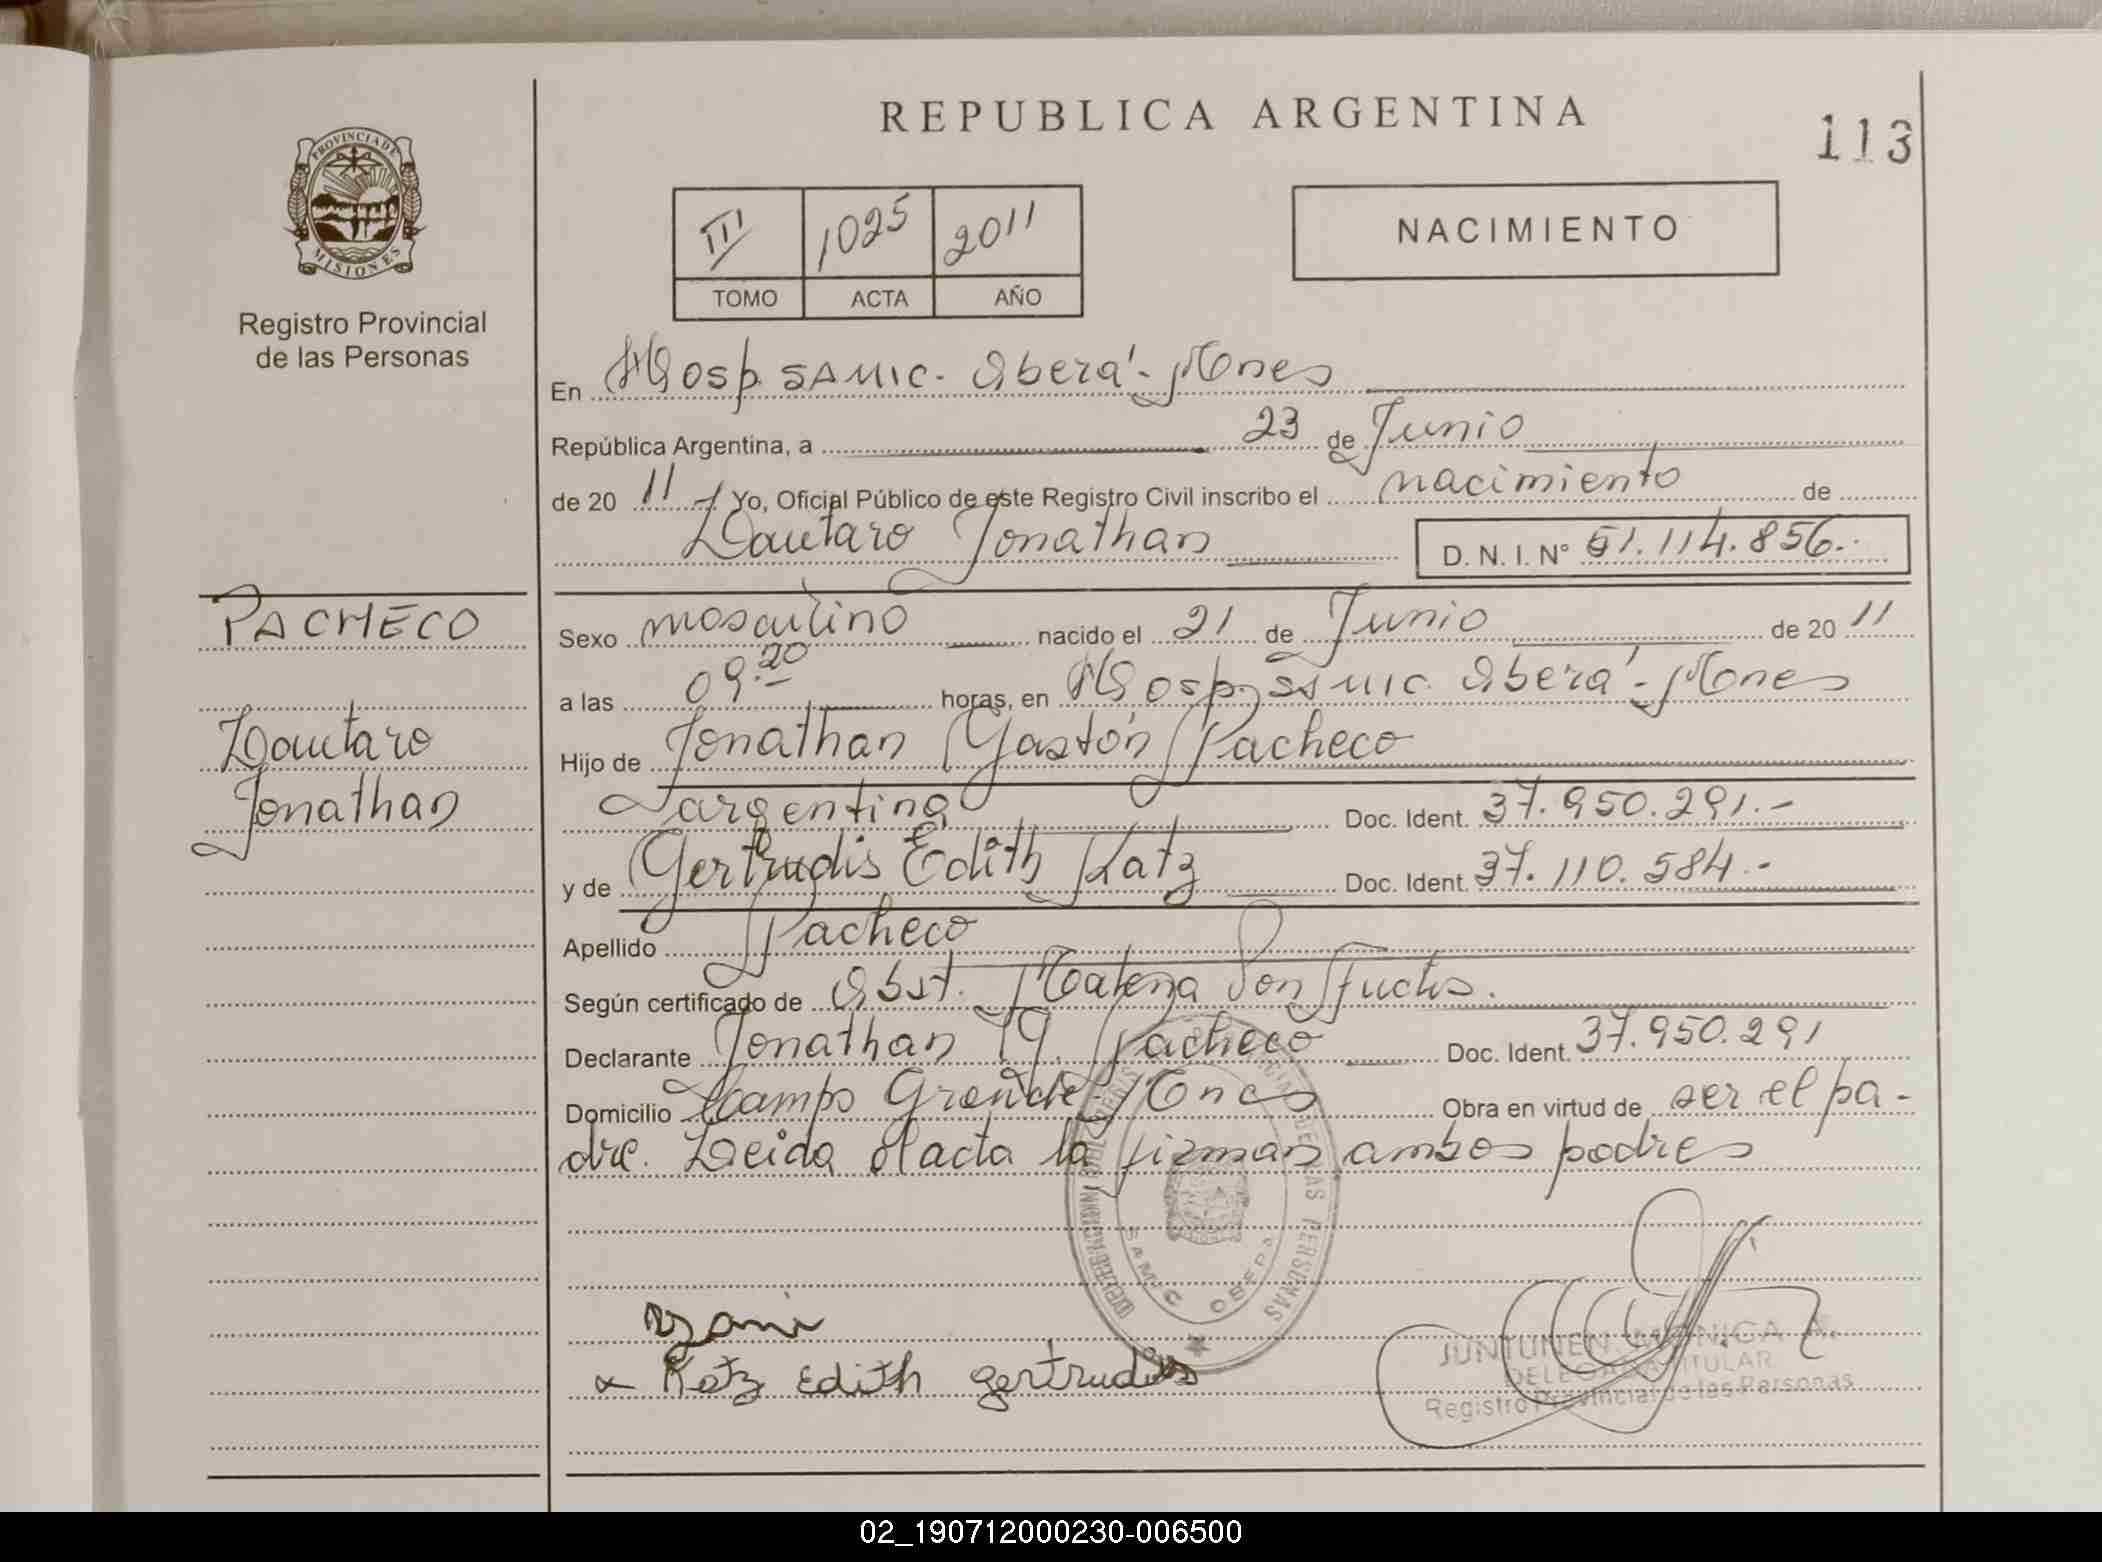 REPUBLICA ARGENTINA
113
PROVINCIA DE
MISIONES
Registro Provincial
de las Personas
III 1025 2011
TOMO ACTA AÑO
NACIMIENTO
En Hosp. SAMIC. Oberá - Mnes
República Argentina, a 23 de Junio
de 20 11 Yo, Oficial Público de este Registro Civil inscribo el nacimiento de
Lautaro Jonathan D. N. I. N° 51.114.856.-
PACHECO
Lautaro
Jonathan
Sexo masculino nacido el 21 de Junio de 20 11
a las 09.20 horas, en Hosp. SAMIC. Oberá - Mnes
Hijo de Jonathan Gastón Pacheco
argentina Doc. Ident. 37.950.291.-
y de Gertrudis Edith Katz Doc. Ident. 37.110.584.-
Apellido Pacheco
Según certificado de Obst. Von Fuchs.
Declarante Jonathan G. Pacheco Doc. Ident. 37.950.291
Domicilio Campo Grande - Mnes Obra en virtud de ser el pa-
dre. Leida el acta la firman ambos padres
SAMIC OBERA
Katz Edith gertrudis
JUNTUNEN, MONICA A.
DELEGADA TITULAR
Registro Provincial de las Personas
02_190712000230-006500